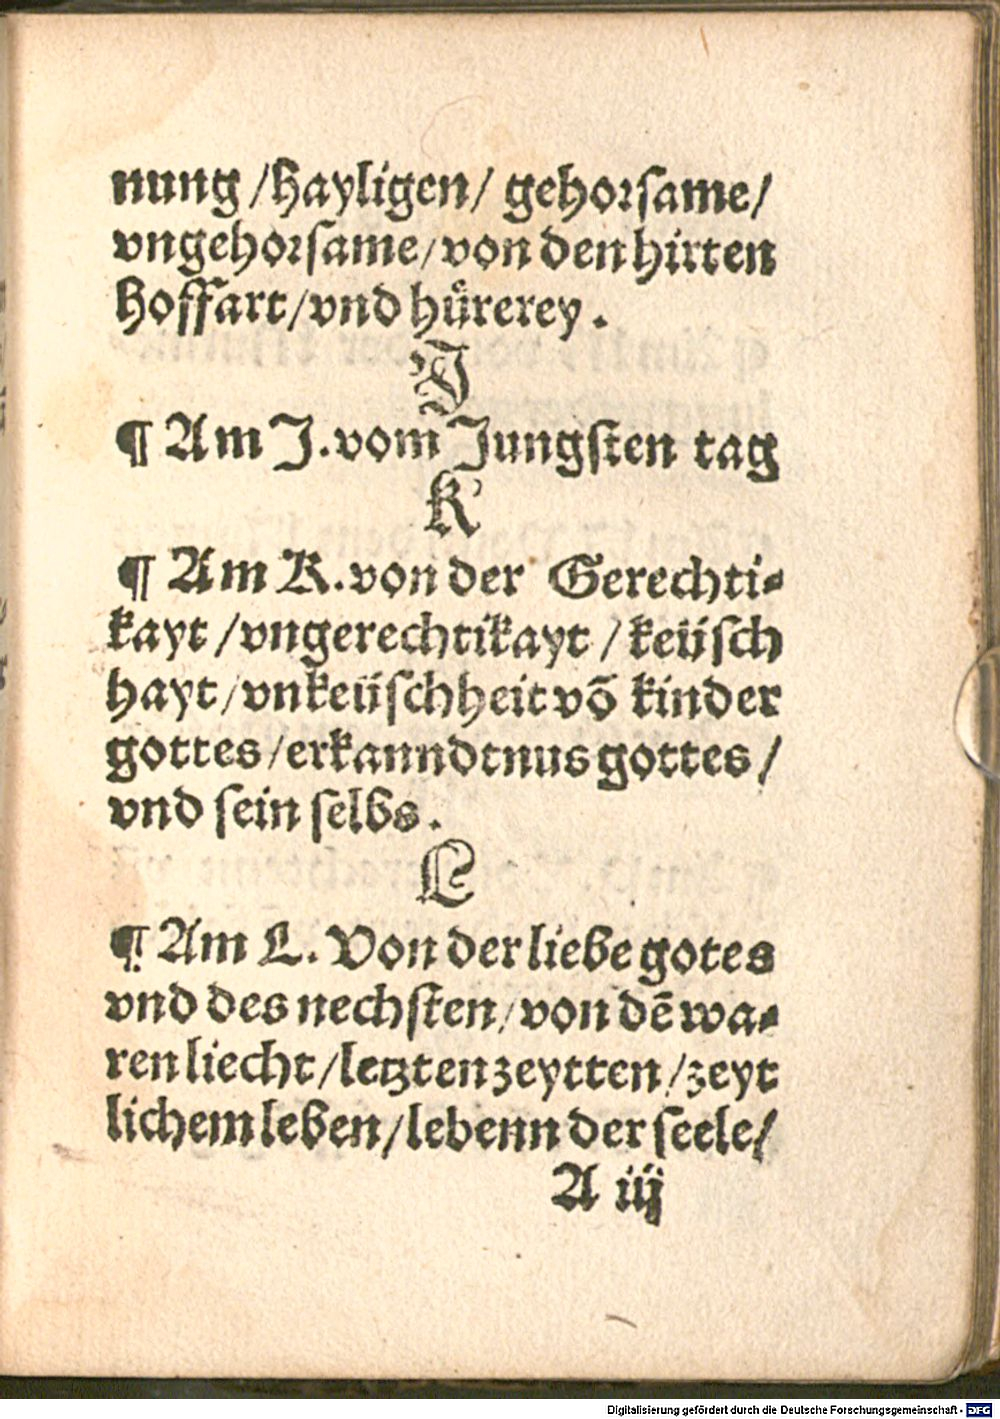 nung /Hayligen/ gehorsame/
vngehorsame/von den hirten
Hoffart/vnd hůrerey.
J
¶ Am J. vom Jungsten tag
K
¶ Am K. von der Gerechti-
kayt /vngerechtikayt / keüsch
hayt/vnkeüschheit võ kinder
gottes/erkanndtnus gottes/
vnd sein selbs.
L
¶ Am L. Von der liebe gotes
vnd des nechsten/von dẽ wa-
ren liecht/letzten zeytten/zeyt
lichem leben/lebenn der seele/
A iij
Digitalisierung gefördert durch die Deutsche Forschungsgemeinschaft - DFG